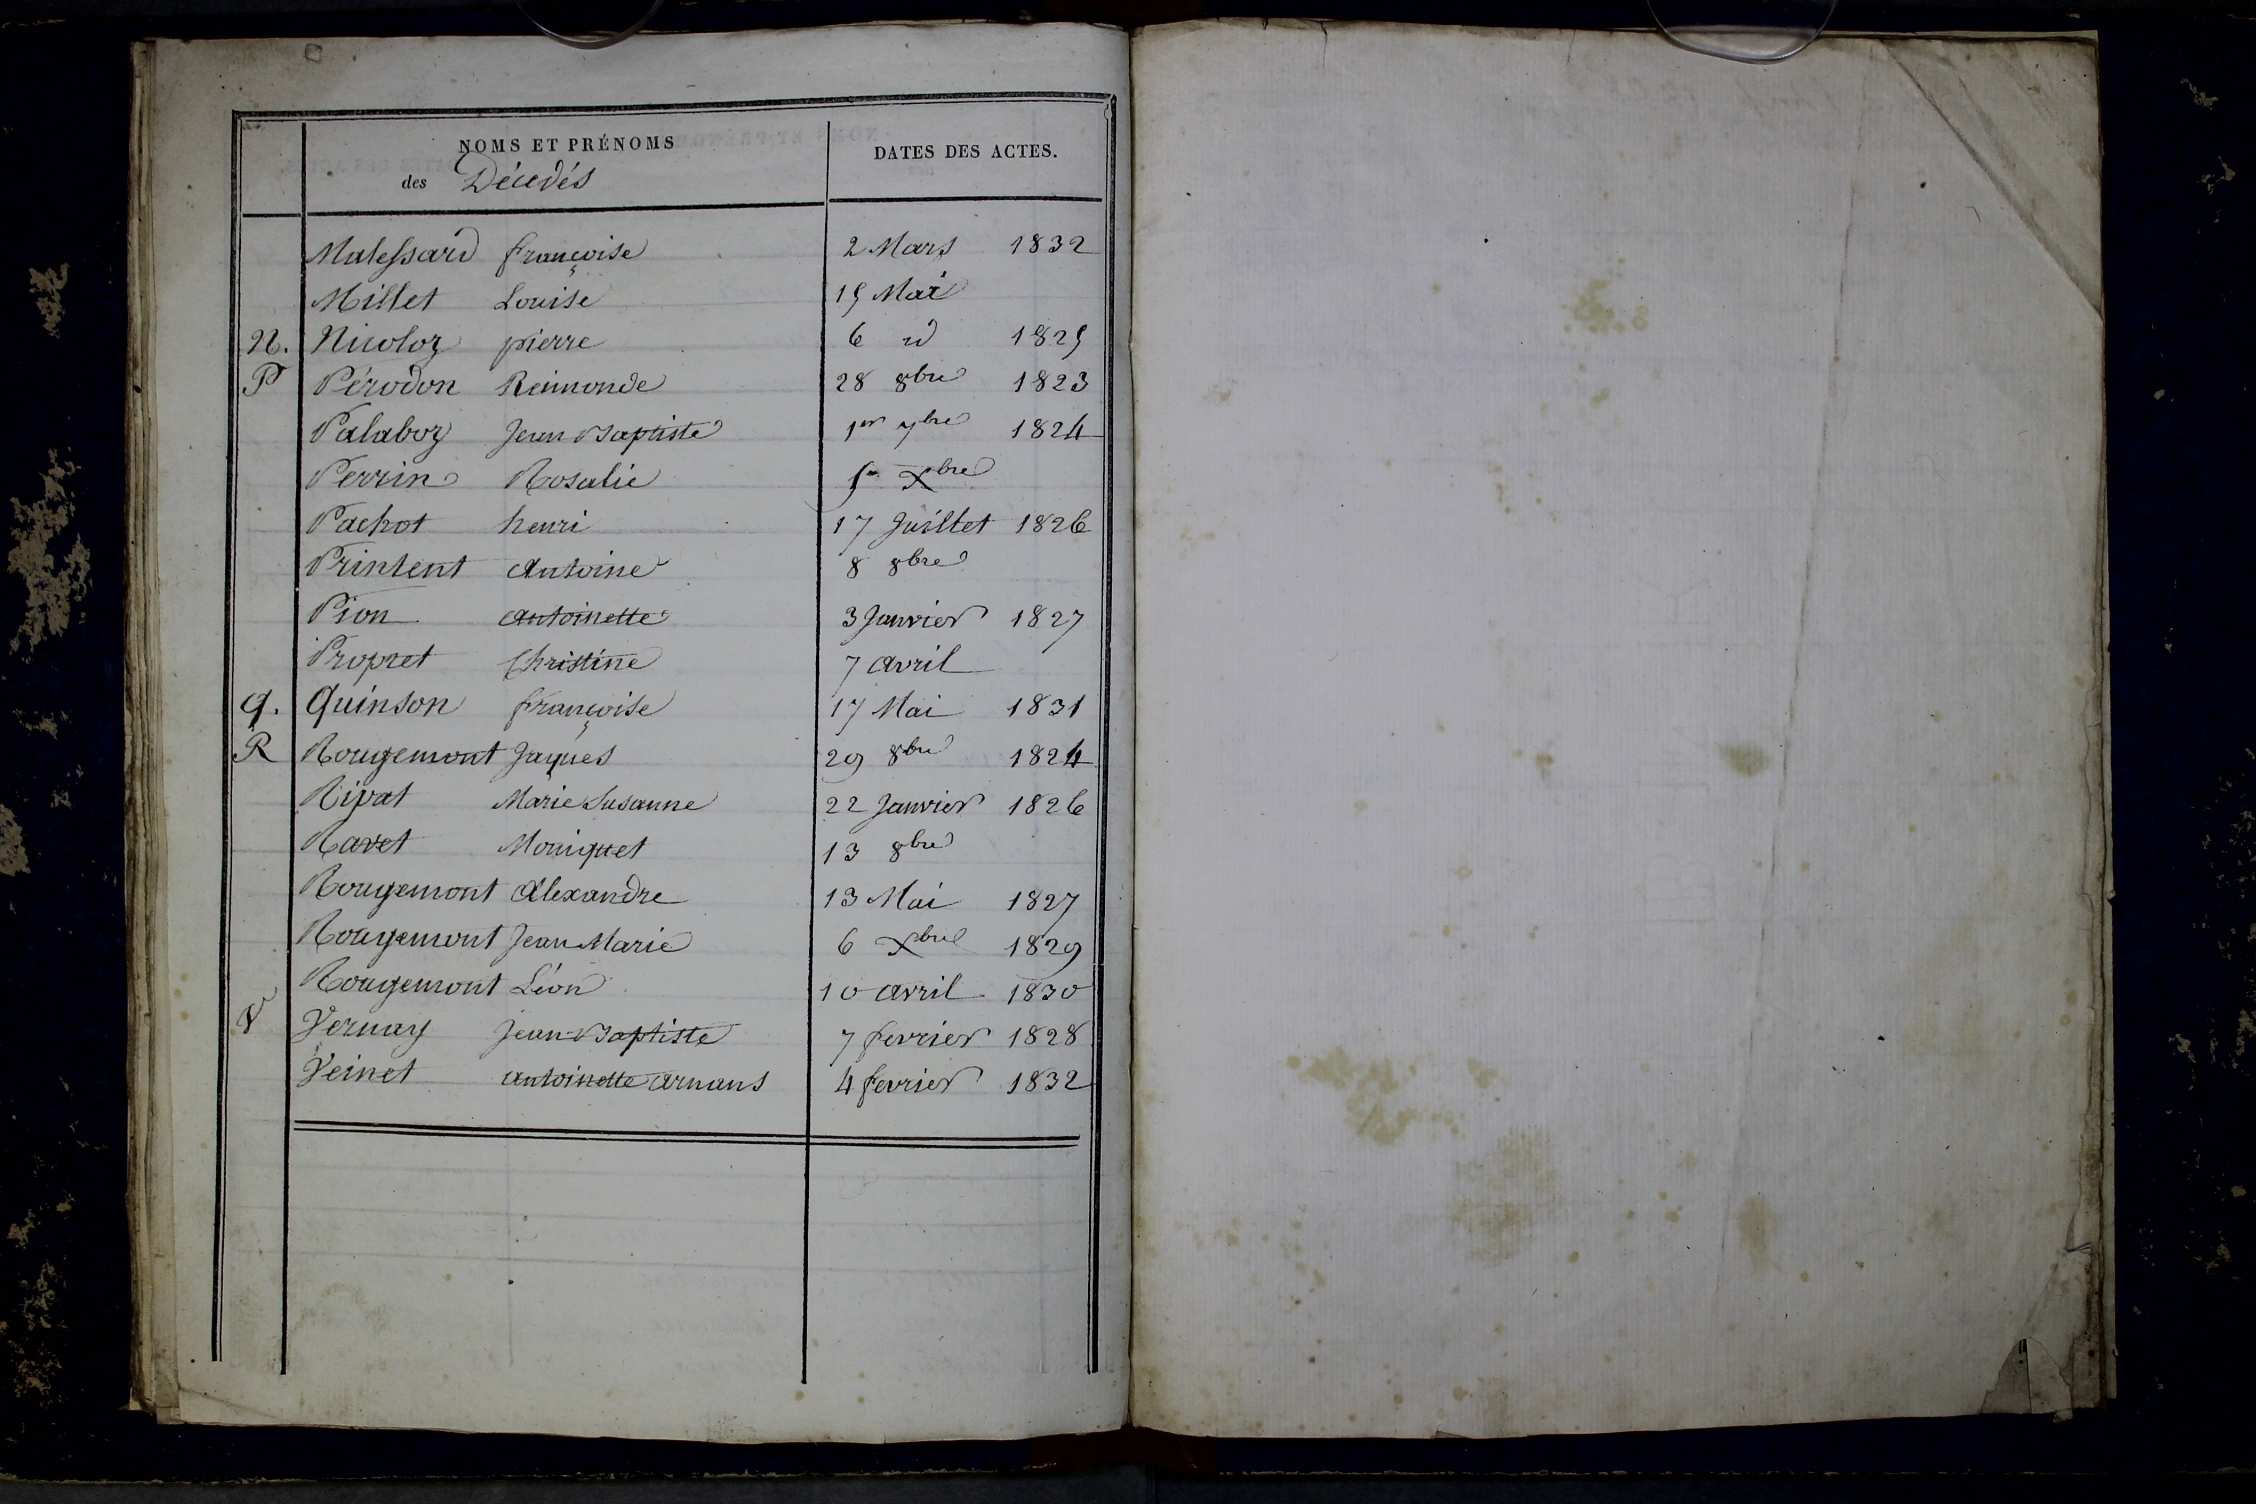 NOMS ET PRÉNOMS
des Décédés
DATES DES ACTES.
Malessard françoise 2 Mars 1832
Millet Louise 15 Mai
N. Nicoloz pierre 6 id 1825
P Pérodon Reimonde 28 8bre 1823
Palaboz Jean Baptiste 1er 7bre 1824
Perrin Rosalie 5 Xbre
Pachot henri 17 Juillet 1826
Printent Antoine 8 8bre
Pion Antoinette 3 Janvier 1827
Propret Christine 7 avril
Q. Quinson françoise 17 Mai 1831
R Rougemont Jaques 29 8bre 1824
Ripat Marie Susanne 22 Janvier 1826
Ravet Mouiquet 13 8bre
Rougemont Alexandre 13 Mai 1827
Rougemont Jean Marie 6 Xbre 1829
Rougemont Léon 10 avril 1830
V Vernay Jean-Baptiste 7 fevrier 1828
Veinet antoinette arnans 4 fevrier 1832